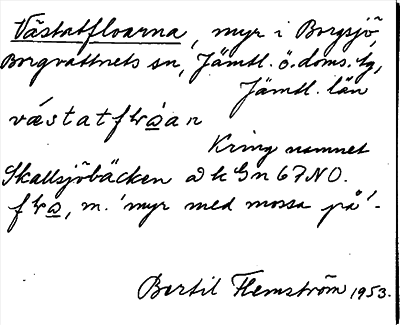 Västatfloarna, myr i Borgsjö,
Borgvattnets sn, Jämtl. ö. doms. tg,
Jämtl. län
västatfloan
Kring namnet
Skallsjöbäcken a k G n 67 NO.
flo, m. 'myr med mossa på'.
Bertil Flemström 1953.